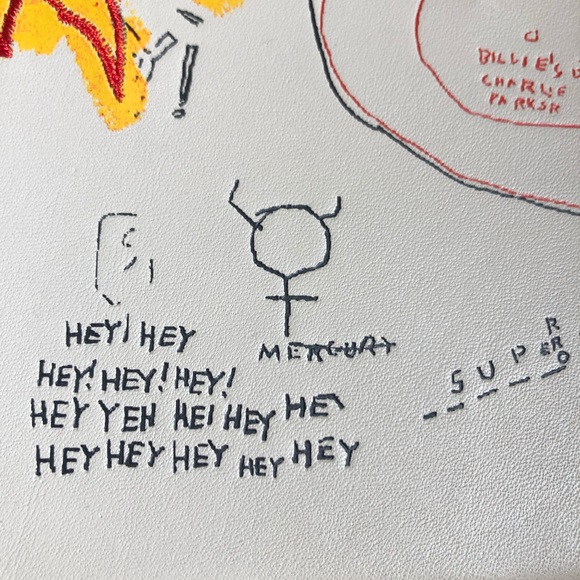 BILLIE'S
CHARLIE
PARKSR
HEY! HEY
MERCURY
HEY! HEY! HEY!
HEY YEH HEI HEY HE
HEY HEY HEY HEY HEY
SUPER